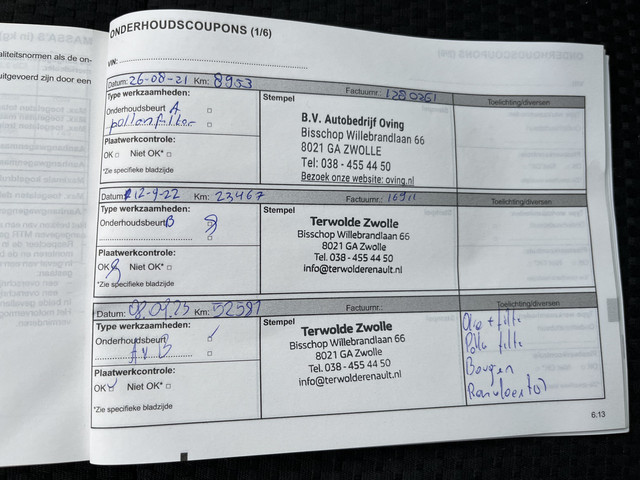 aliteitsnormen als de on-
uitgevoerd zijn door een
ONDERHOUDSCOUPONS (1/6)
VIN:
Datum: 26-08-21 Km: 8953 Factuurnr.: 1280261 Toelichting/diversen
Type werkzaamheden:
Onderhoudsbeurt A
pollenfilter
Plaatwerkcontrole:
OK Niet OK*
*Zie specifieke bladzijde
Stempel
B.V. Autobedrijf Oving
Bisschop Willebrandlaan 66
8021 GA ZWOLLE
Tel: 038 - 455 44 50
Bezoek onze website: oving.nl
Datum: 12-9-22 Km: 23467 Factuurnr.: Toelichting/diversen
Type werkzaamheden:
Onderhoudsbeurt B
Plaatwerkcontrole:
OK Niet OK*
*Zie specifieke bladzijde
Stempel
Terwolde Zwolle
Bisschop Willebrandlaan 66
8021 GA Zwolle
Tel. 038 - 455 44 50
info@terwolderenault.nl
Datum: Km: 52581 Factuurnr.: Toelichting/diversen
Type werkzaamheden:
Onderhoudsbeurt
Plaatwerkcontrole:
OK Niet OK*
*Zie specifieke bladzijde
Stempel
Terwolde Zwolle
Bisschop Willebrandlaan 66
8021 GA Zwolle
Tel. 038 - 455 44 50
info@terwolderenault.nl
Olie + filter
filter
Bougien
6.13